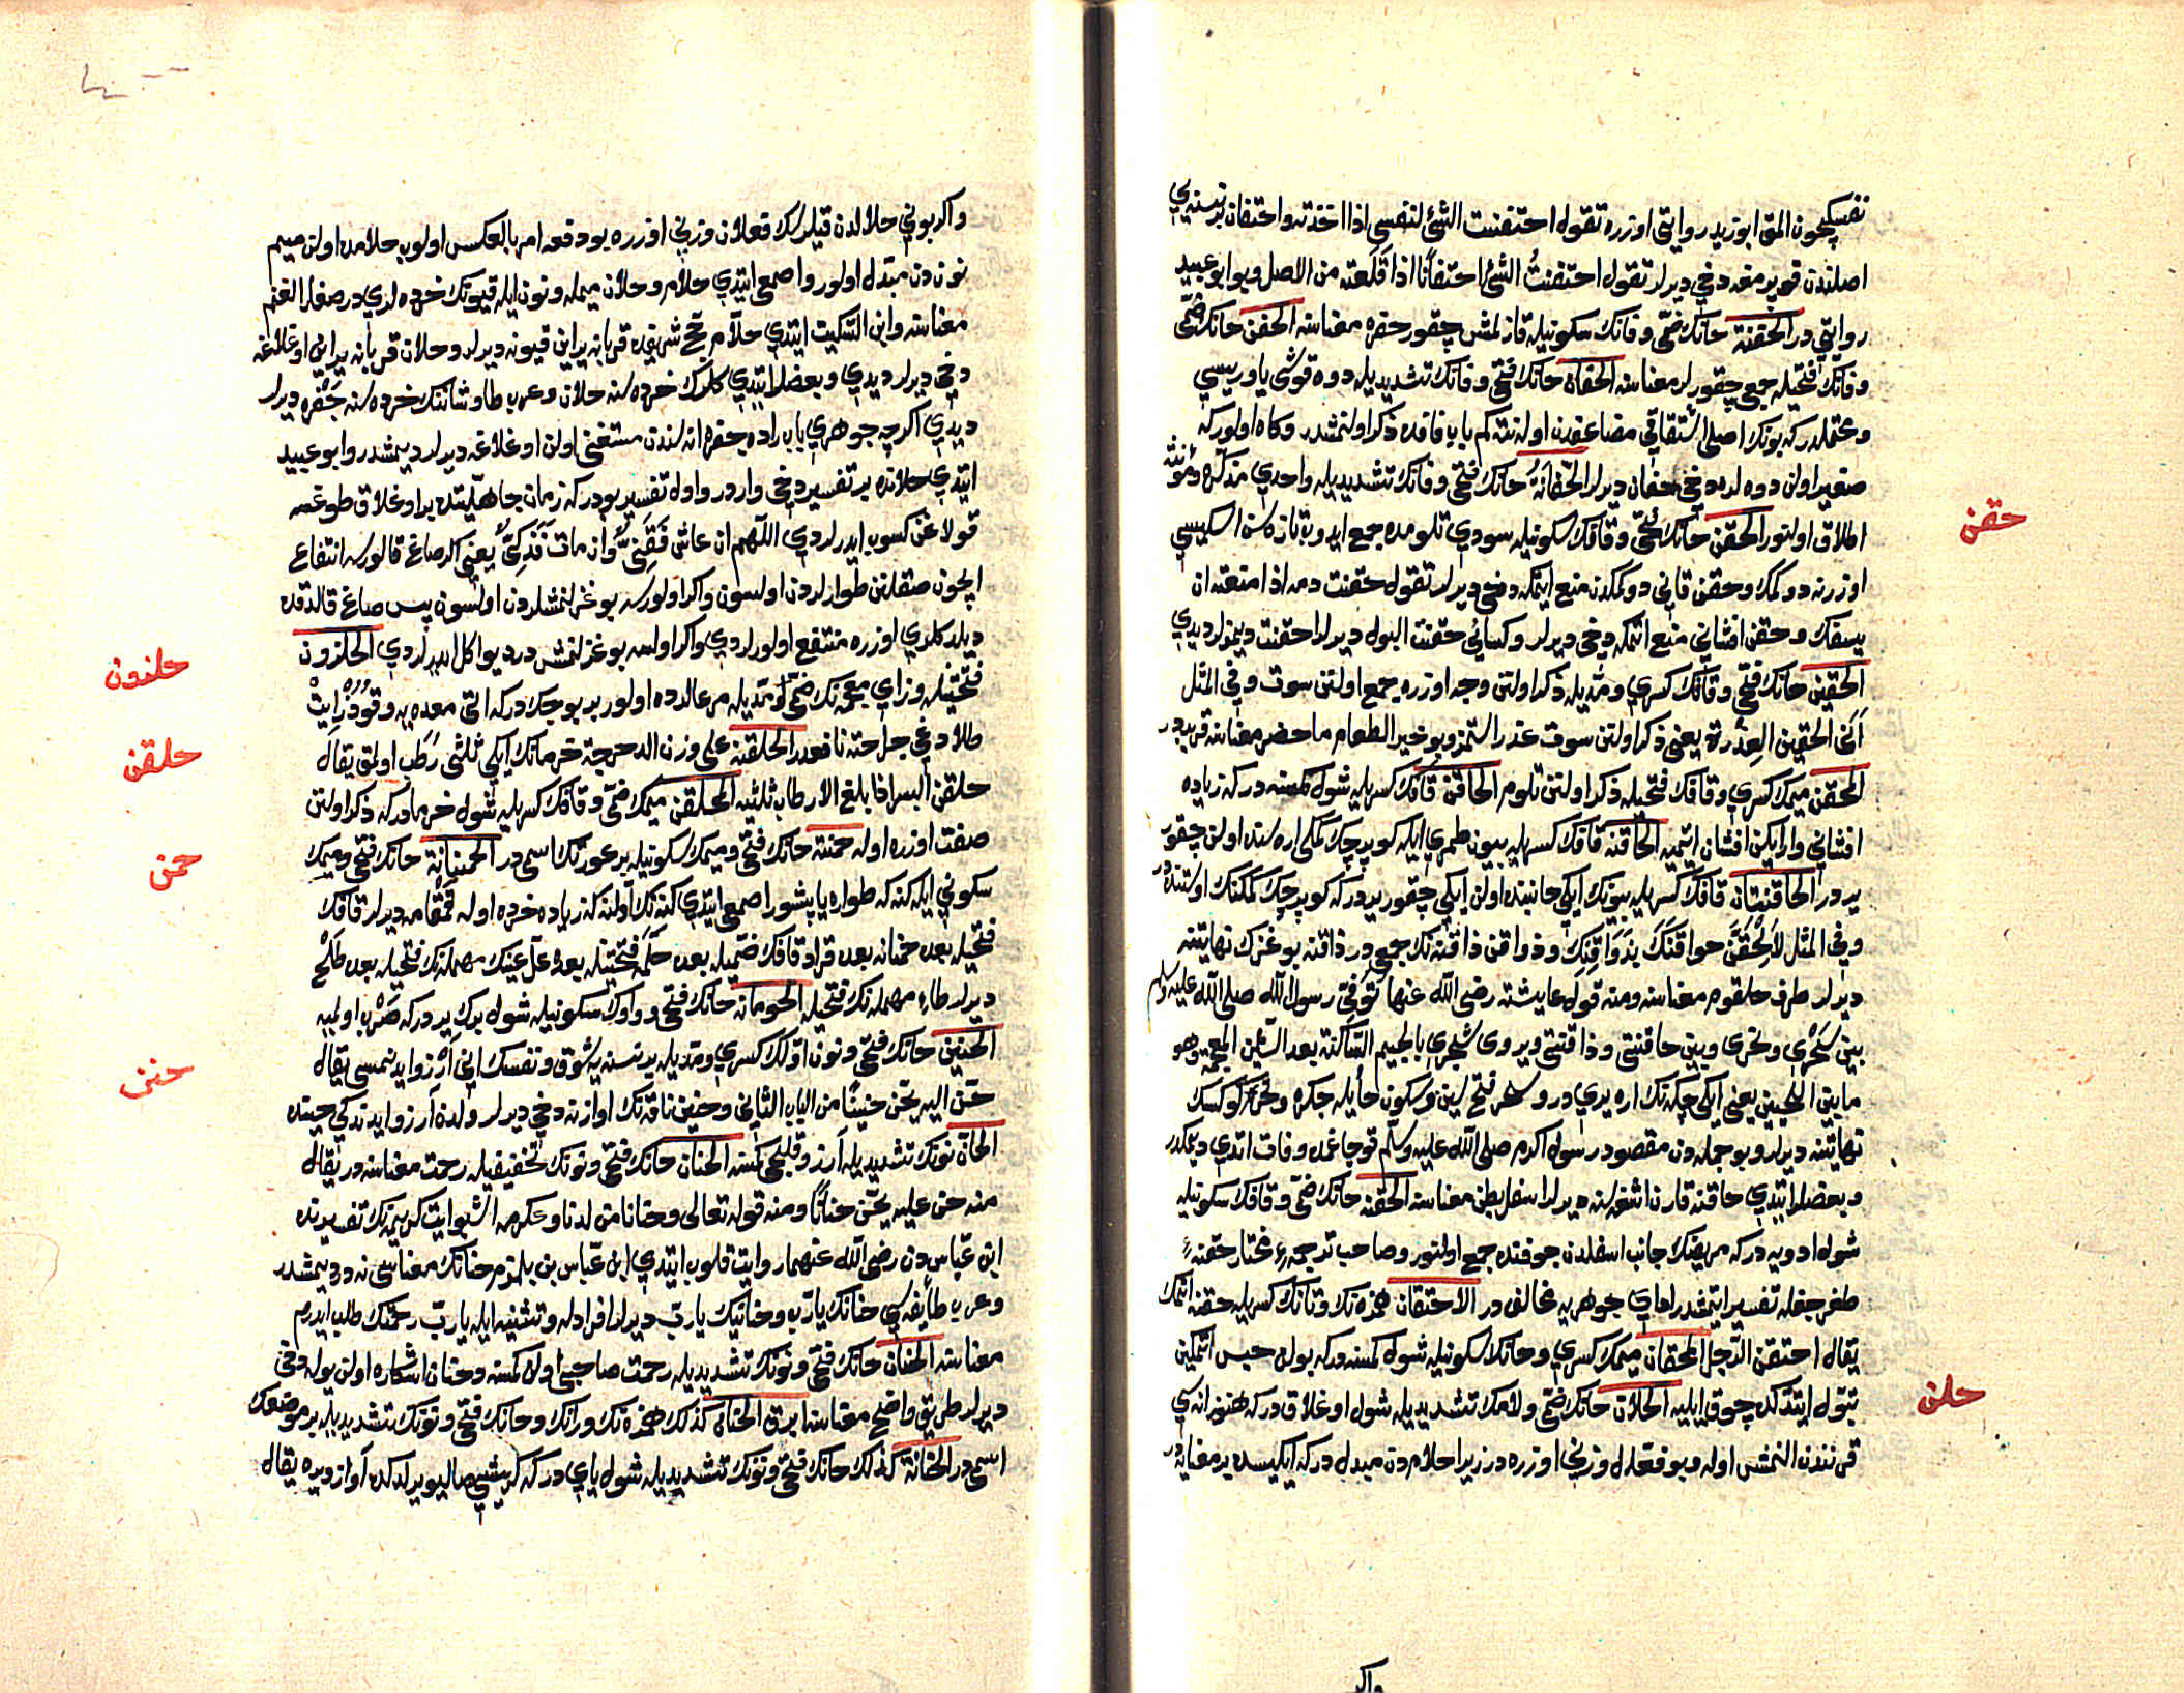 نفسكچون المق ابوزيد روايتى اوزره تقول احتفنت الشئ لنفسى اذا اخذته واحتفان بر نسنه يي
اصلندن قوپرمغه دخي ديرلر تقول احتفنت الشئ احتفانا اذا قلعته من الاصل وبو ابو عبيد
روايتي در الحفنة حانك ضمى وفانك سكونيله قازلمش چقور حفره معناسنه الحفن حانك ضمى
وفانك فتحيله جمعى چقورلر معناسنه الحفان حانك فتحى وفانك تشديديله دوه قوشى ياوريسي
ومحتملدر كه بونك اصل اشتقاقي مضاعفدن اوله نته كم باب فاده ذكر اولنمشدر وكاه اولور كه
صغير اولن دوه لره دخي حفان ديرلر الحفانة حانك فتحى وفانك تشديديله واحدي مذكره ومؤنثه
اطلاق اولنور الحقن حانك فتحى وقافك سكونيله سودي تلومده جمع ايدوب تازه سن اسكيسي
اوزرنه دوكمك وحقن قاني دوكمكدن منع ايتمكه دخي ديرلر تقول حقنت دمه اذا منعته ان
يسفك وحقن افشاني منع اتمكه دخي ديرلر وكسائي حقنت البول ديرلر احقنت ديمزلر ديدي
الحقين حانك فتحى وقافك كسري ومديله ذكر اولنن وجه اوزره جمع اولنن سوت وفي المثل
ابى الحقين العذرة يعنى ذكر اولنن سوت عذر استمز وبو خير الطعام ما حضر معناسنه قريبدر
المحقن ميمك كسري وقافك فتحيله ذكر اولنن تلوم الحاقن قافك كسريله شول كمسنه در كه زياده
افشاني وار ايكن افشان ايتميه الحاقنة قافك كسريله بيون طمري ايله كوپرجك كمكي اره سنده اولن چقور
ير در الحاقنتان قافك كسريله بيونك ايكي جانبنده اولن ايكي چقور يردر كه كوپرجك كمكنك اوستنده در
وفي المثل لالحقن حواقنك بذواقنك وذواقن ذاقنه نك جمعي در ذاقنه بوغزك نهايتنه
ديرلر طرف حلقوم معناسنه ومنه قول عايشة رضى الله عنها توفي رسول الله صلى الله عليه وسلم
بين سحري ونحري وبين حاقنتي وذاقنتي ويروى شجري بالجيم الساكنة بعد الشين المعجمه وهو
ما بين اللحيين يعنى ايكي چكه نك اره يري در وسحر فتح سين وسكون حا ايله جكره ونحر كوكسك
نهايتنه ديرلر وبو جمله دن مقصود رسول اكرم صلى الله عليه وسلم قوجاغمده وفات اتدي ديمكدر
وبعضلر ايتدي حاقنه قارن اشغه سنه ديرلر اسفل بطن معناسنه الحقنه حانك ضمى وقافك سكونيله
شول ادويه در كه مريضك جانب اسفلدن جوفنده جمع اولنور وصاحب ترجمهء مختار حقنهء
طغرجغله تفسير ايتمشدر اما بو جوهري يه مخالف در الاحتقان همزه نك وتانك كسريله حقنه اتمك
يقال احتقن الرجل المحقان ميمك كسري وحانك سكونيله شول كمسنه در كه بولن حبس اتمكين
تبول ايتدكده چوق ايليه الحلان حانك ضمى ولامك تشديديله شول اوغلاق در كه هنوز انه سي
قرنندن النمش اوله وبو فعلال وزني اوزره در زيرا حلامدن مبدل در كه ايكيسده بر معنايه در
حقن
حلن
واكر
واكر بوني حلالدن قيلرسك فعلان وزني اوزره بودفعه امر بالعكس اولوب حلامده اولن ميم
نوندن مبدل اولور واصمعى ايتدي حلام وحلان ميمله ونون ايله قيونك خرده لري در صغار الغنم
معناسنه وابن السكيت ايتدي حلام حج شريفده قربانه يراين قيونه ديرلر وحلان قربانه يراين اوغلاغه
دخي ديرلر ديدي وبعضلر ايتدي كلرك خرده سنه حلان وعرب طاوشانك خرده سنه جفره ديرلر
ديدي اكرچه جوهري باب راده جفره انه سندن مستغنى اولن اوغلاغه ديرلر ديمشدر وابو عبيد
ايتدي حلانده بر تفسير دخي واردر واول تفسير بودر كه زمان جاهليتده بر اوغلاق طوغسه
قولاغن كسوب ايدرلردي اللهم ان عاش فقني وان مات فذكي يعنى اكر صاغ قالورسه انتفاع
ايچون صقلانن طوارلردن اولسون واكر اولورسه بوغزلنمشلردن اولسون پس صاغ قالدقده
ديلدكلري اوزره منتفع اولورلردي واكر اولسه بوغزلنمش در ديو اكل ايدرلردي الحلزون
فتحتيله وزاي معجمه نك ضمى ومديله مرعالرده اولور بر بوجك در كه اتى معده يه وقوذرايت
طلادخي جراحته نافعدر الحلقنة على وزن الدحرجة خرمانك ايكي ثلثى رطب اولمق يقال
حلقن البسر اذا بلغ الارطاب ثلثيه المحلقن ميمك ضمى وقافك كسريله شول خرما در كه ذكر اولنن
صفت اوزره اوله حمنة حانك فتحى وميمك سكونيله بر عورتك اسمى در الحمنانة حانك فتحى وميمك
سكوني ايله كنه كه طواره ياپشور اصمعى ايتدي كنه نك اولنه كه زياده خرده اوله قمقامه ديرلر قافك
فتحيله بعده حمنانه بعده قراد قافك ضميله بعده حلمه فتحتيله بعده عل عينك مهمله نك فتحيله بعده طلح
ديرلر طاء مهمله نك فتحيله الحومانه حانك فتحى وواوك سكونيله شول برك ير در كه صرب اولميه
الحنين حانك فتحى ونون اولك كسري ومديله بر نسنه يه شوق ونفسك اني ارزو ايدنمسى يقال
حن اليه يحن حنينا من الباب الثاني وحنين ناقه نك اوازنه دخي ديرلر ولدن آرزو ايدندكي حينده
الحان نونك تشديديله آرزوقليجي كمسنه الحنان حانك فتحى ونونك تخفيفيله رحمت معناسنه در يقال
منه حن عليه يحن حنانا ومنه قوله تعالى وحنانا من لدنا وعكرمه اشبو ايت كريمه نك تفسيرنده
ابن عباس دن رضى الله عنهما روايت قلوب ايتدي ابن عباس بن بلمزم حنانك معناسى نه در ديمشدر
وعرب طايفه سي حنانك يا رب وحنانيك يا رب ديرلر افرادله وتثنيه ايله يا رب رحمتك طلب ايدرم
معناسنه الحنان حانك فتحى ونونك تشديديله رحمت صاحبى اولن كمسنه وحنان اشكاره اولن يوله دخي
ديرلر طريق واضح معناسنه ابرق الحنان كذلك همزه نك ورانك وحانك فتحى ونونك تشديديله بر موضعك
اسمى در الحنانة كذلك حانك فتحى ونونك تشديديله شول ياي در كه كريشني صاليويرلدكده آواز ويره يقال
حلزون
حلقن
حمن
حنن